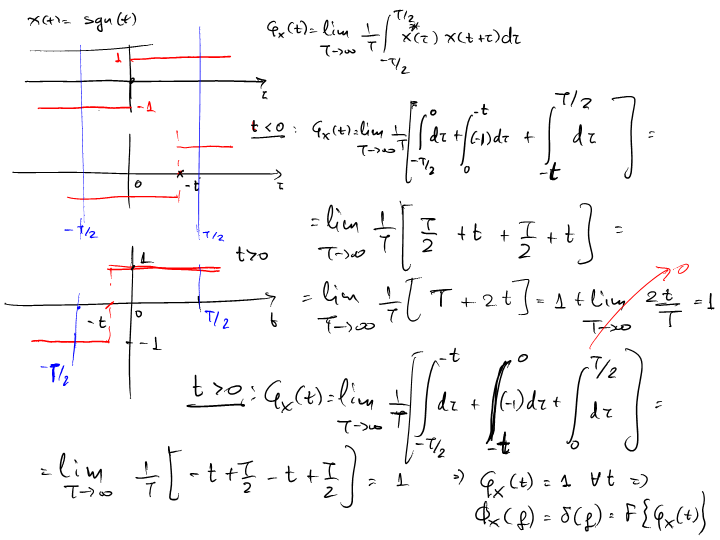 x(t) = sgn(t)
φx(t) = lim T→∞ 1/T ∫_{-T/2}^{T/2} x*(τ) x(t+τ)dτ
1
-1
τ
t<0 : φx(t) = lim T→∞ 1/T [ ∫_{-T/2}^{0} dτ + ∫_{0}^{-t} (-1)dτ + ∫_{-t}^{T/2} dτ ] =
0
-t
τ
-T/2
T/2
= lim T→∞ 1/T [ T/2 + t + T/2 + t ] =
1
t>0
= lim T→∞ 1/T [ T + 2t ] = 1 + lim T→∞ 2t/T = 1
0
-t
0
T/2
t
-1
-T/2
t>0 : φx(t) = lim T→∞ 1/T [ ∫_{-T/2}^{-t} dτ + ∫_{-t}^{0} (-1)dτ + ∫_{0}^{T/2} dτ ] =
= lim T→∞ 1/T [ -t + T/2 - t + T/2 ] = 1 ⇒ φx(t) = 1 ∀t ⇒
Φx(f) = δ(f) = F{φx(t)}